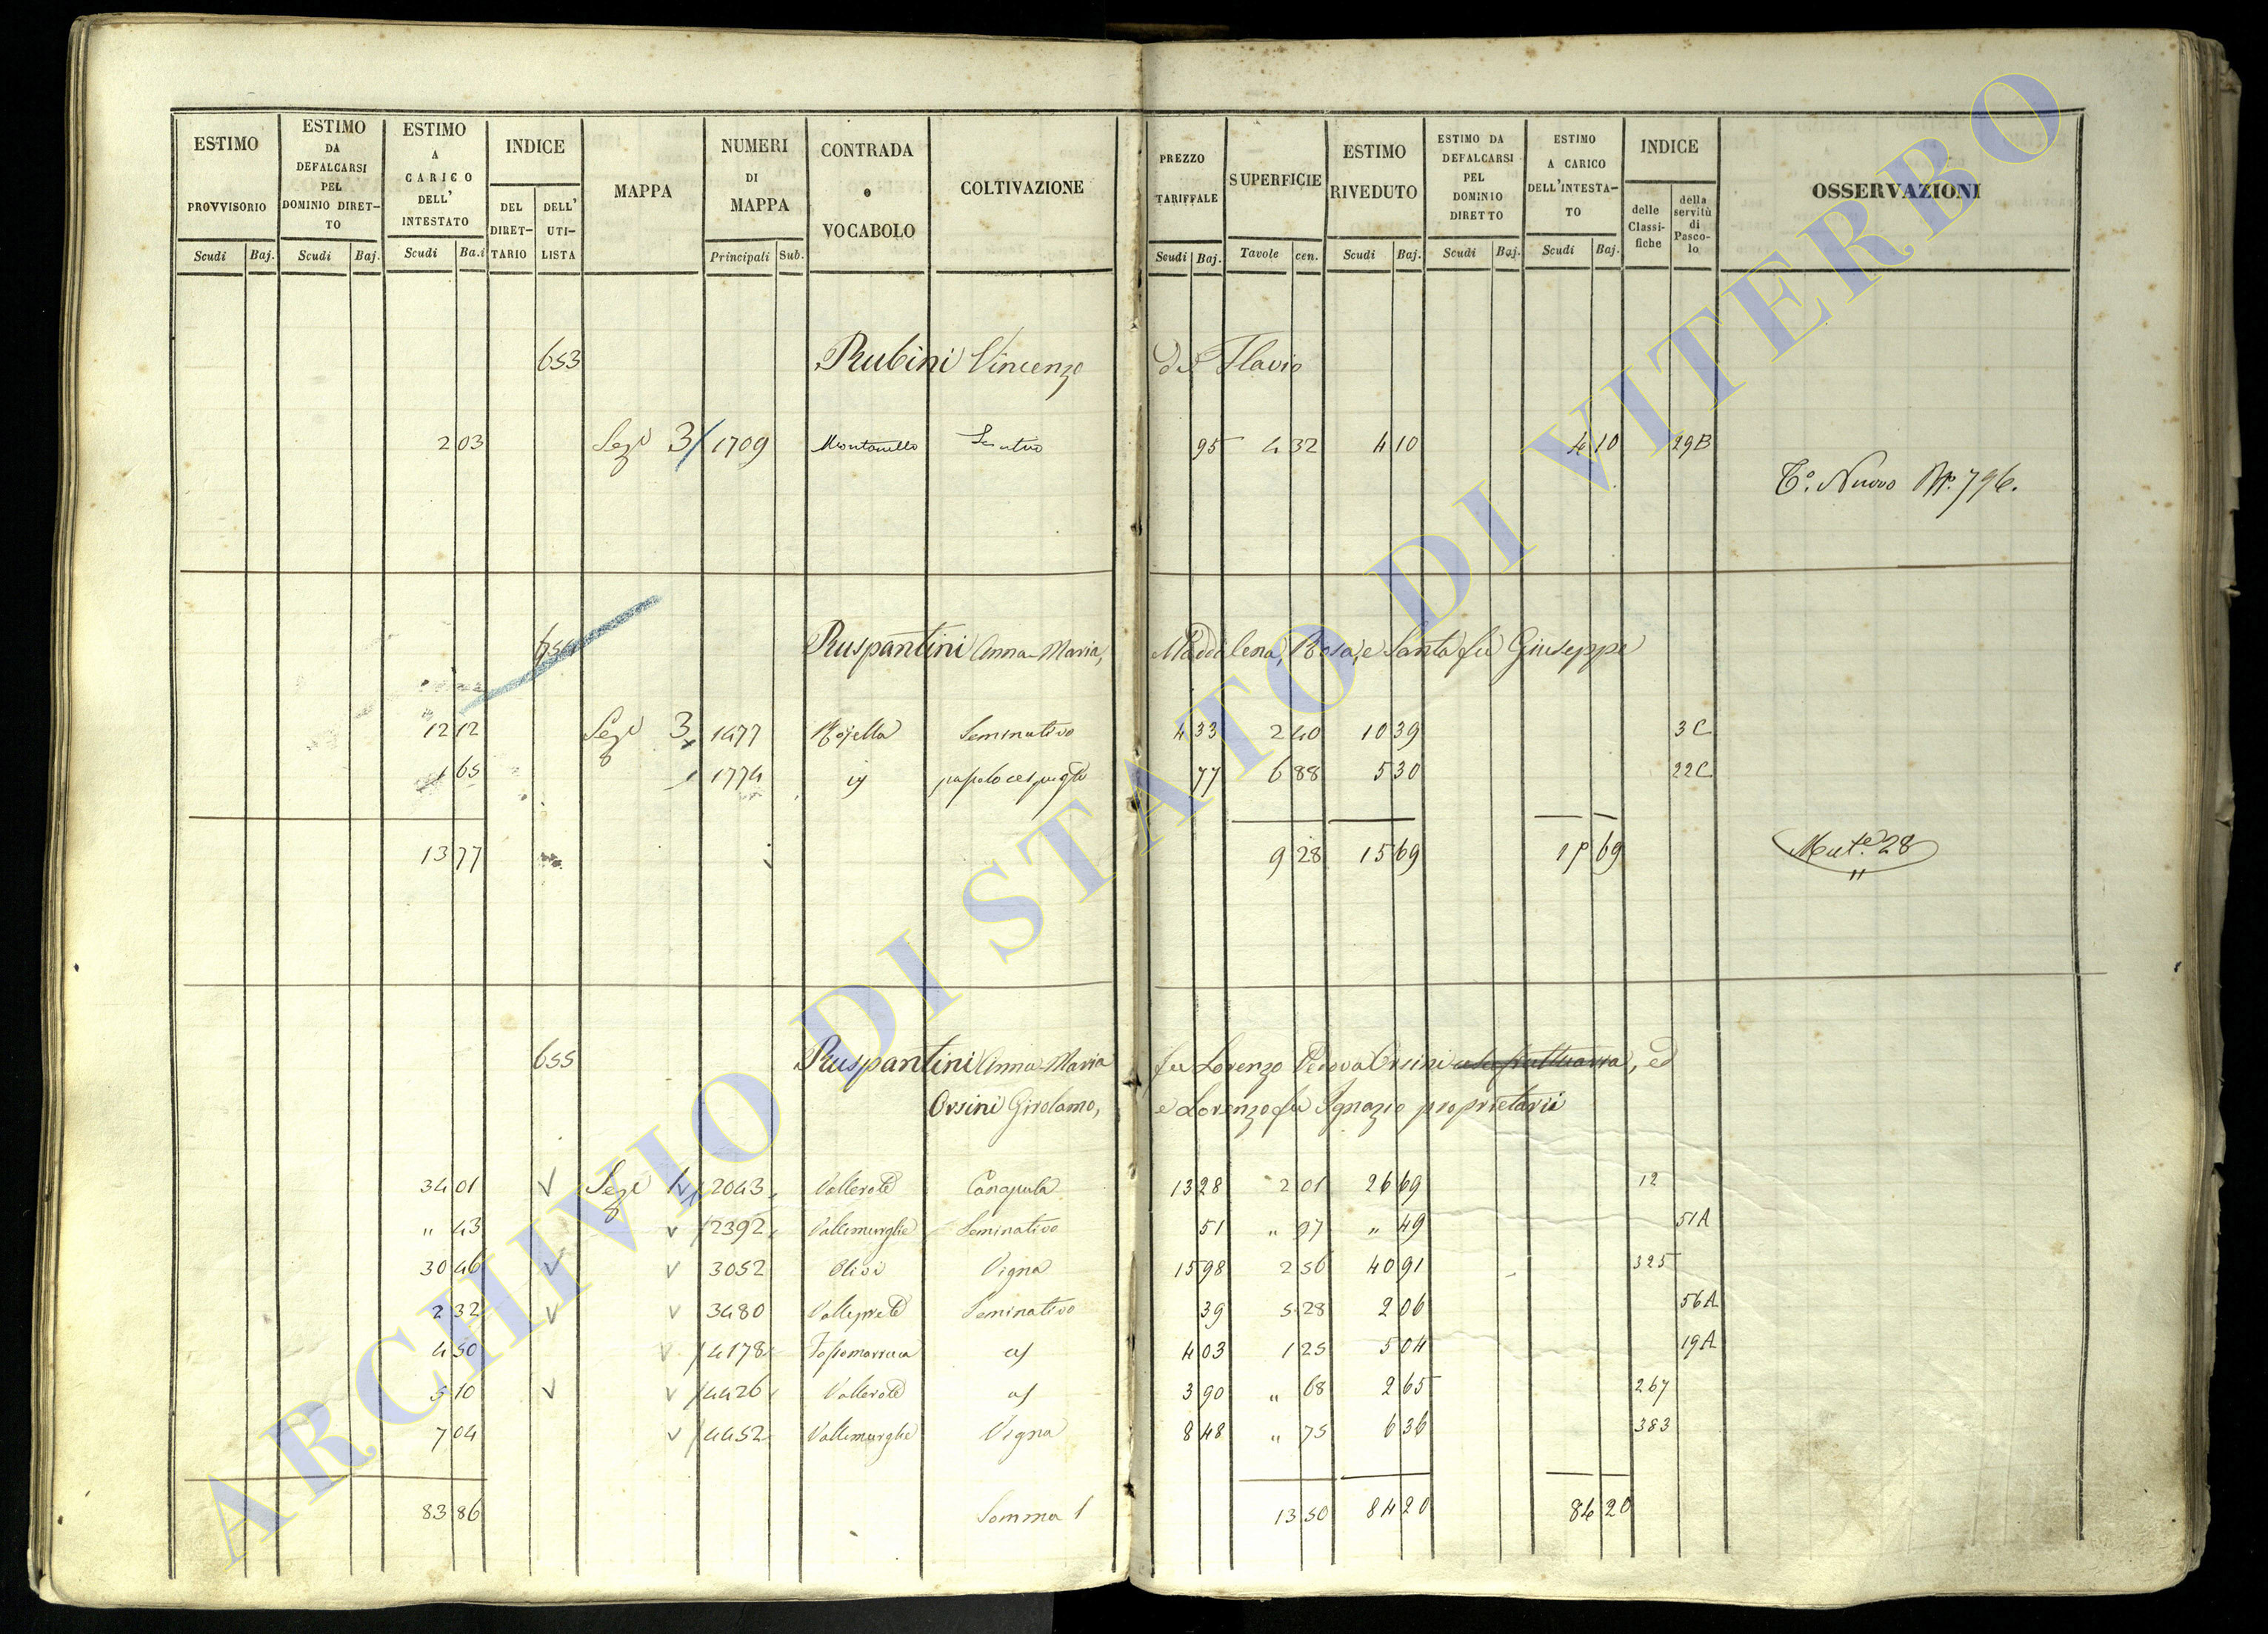 ESTIMO PROVVISORIO
Scudi Baj.
ESTIMO DA DEFALCARSI PEL DOMINIO DIRET-TO
Scudi Baj.
ESTIMO A CARICO DELL' INTESTATO
Scudi Ba.i
INDICE
DEL DIRET-TARIO
DELL' UTI-LISTA
MAPPA
NUMERI DI MAPPA
Principali Sub.
CONTRADA e VOCABOLO
COLTIVAZIONE
PREZZO TARIFFALE
Scudi Baj.
SUPERFICIE
Tavole cen.
ESTIMO RIVEDUTO
Scudi Baj.
ESTIMO DA DEFALCARSI PEL DOMINIO DIRETTO
Scudi Baj.
ESTIMO A CARICO DELL'INTESTA-TO
Scudi Baj.
INDICE
delle Classi-fiche
della servitù di Pasco-lo
OSSERVAZIONI
653 Rubini Vincenzo di Flavio
2 03 Sez. 3 1709 Montanello 95 4 32 4 10 4 10 29B
T.° Nuovo N.° 796.
654 Ruspantini Anna-Maria, Maddalena, Rosa, e Santa fu Giuseppe
12 12 Sez. 3 1477 Seminativo 4 33 2 40 10 39 3C
1 65 1774 77 6 88 5 30 22C
13 77 9 28 15 69 15 69 Mut.e 28
655 Ruspantini Anna-Maria fu Lorenzo Vedova Orsini usufruttuaria, ed
Orsini Girolamo, e Lorenzo fu Ignazio proprietarii
34 01 Sez. 1 2043 Vallerote Canapula 13 28 2 01 26 69 12
" 43 2392 Vallemurghe Seminativo 51 " 97 " 49 51A
30 46 3052 Olivi Vigna 15 98 2 56 40 91 325
2 32 3480 Valleprete Seminativo 39 5 28 2 06 56A
4 50 4178 4 03 1 25 5 04 19A
5 10 4426 Vallerote 3 90 " 68 2 65 267
7 04 4452 Vallemurghe Vigna 8 48 " 75 6 36 383
83 86 Somma 1 13 50 84 20 84 20
ARCHIVIO DI STATO DI VITERBO